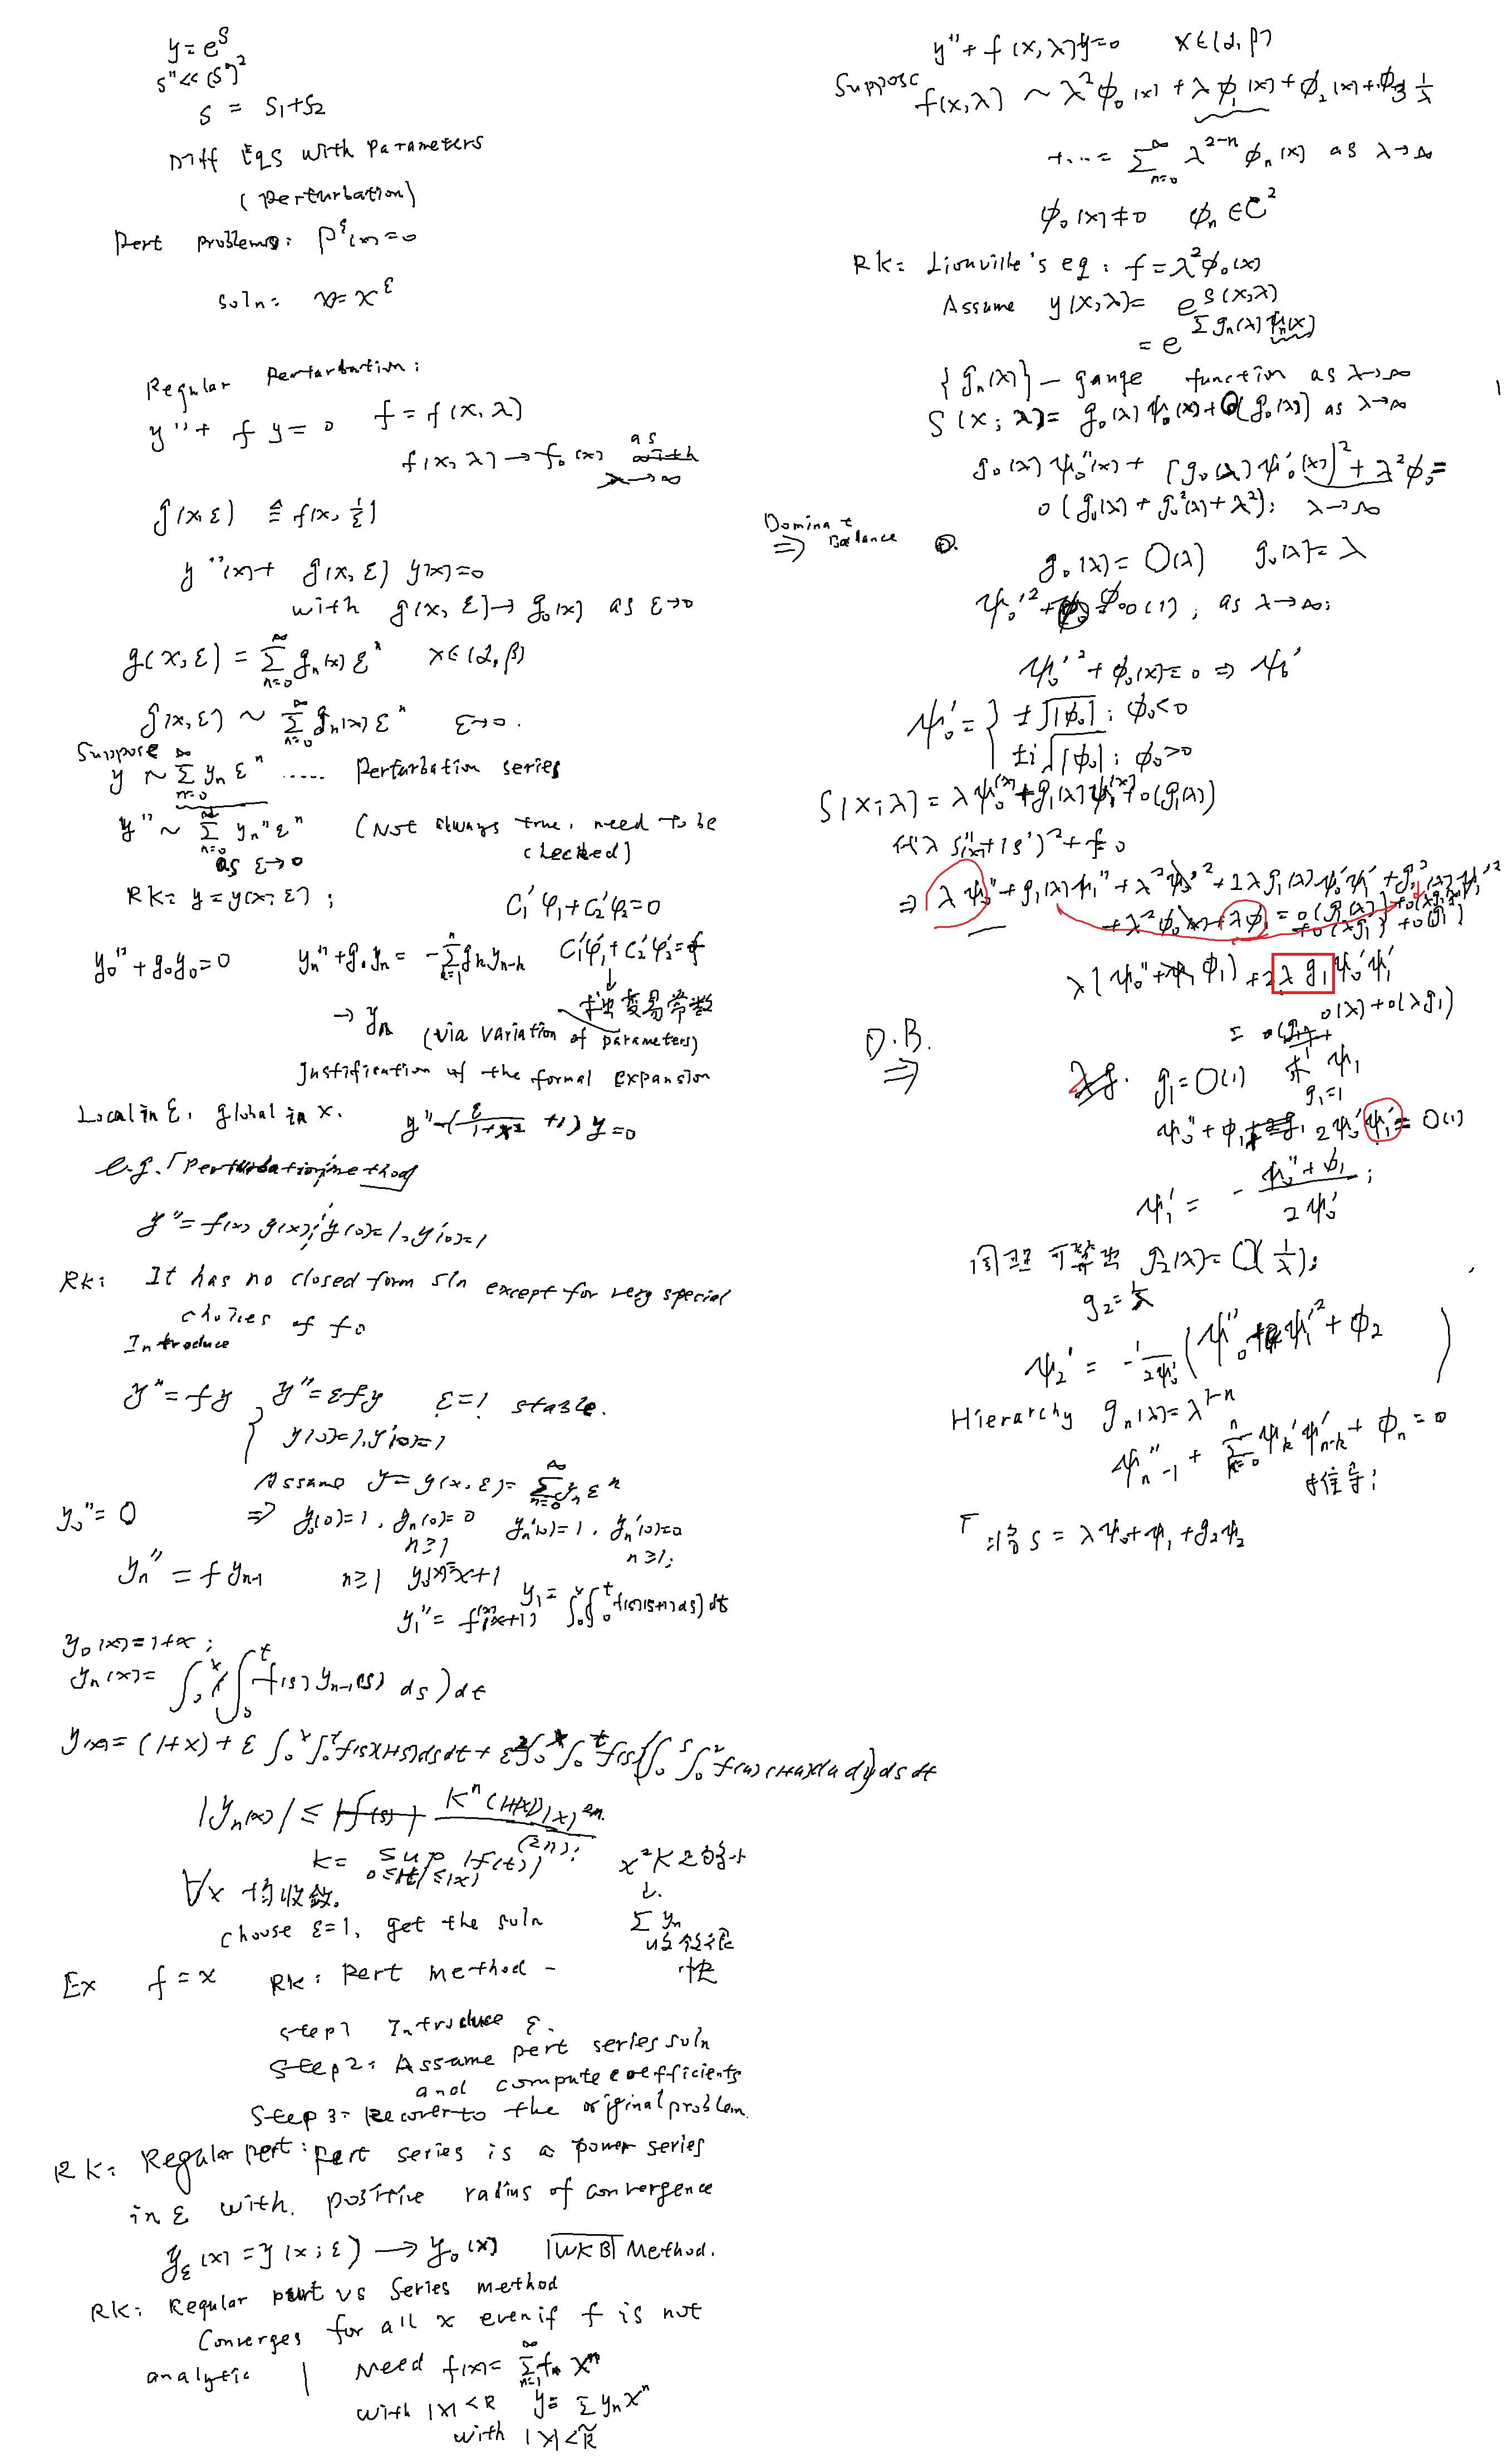 y = e^S
S'' << (S')^2
S = S1 + S2
Diff Eqs with Parameters
(Perturbation)
Pert Problems: P^ε(x)=0
soln: x = x^ε
Regular Perturbation:
y'' + f y = 0   f = f(x, λ)
f(x, λ) → f_0(x) as
λ→∞
g(x, ε) ≜ f(x, 1/ε)
y''(x) + g(x, ε) y(x) = 0
with g(x, ε) → g_0(x) as ε→0
g(x, ε) = Σ_{n=0}^∞ g_n(x) ε^n   x∈(α, β)
g(x, ε) ~ Σ_{n=0}^∞ g_n(x) ε^n   ε→0.
Suppose
y ~ Σ_{n=0}^∞ y_n ε^n ..... Perturbation series
y'' ~ Σ_{n=0}^∞ y_n'' ε^n   (Not always true, need to be
checked)
as ε→0
RK: y = y(x; ε);
C_1'φ_1 + C_2'φ_2 = 0
y_0'' + g_0 y_0 = 0   y_n'' + g_0 y_n = -Σ_{k=1}^n g_k y_{n-k}   C_1'φ_1' + C_2'φ_2' = f
→ y_n (via variation of parameters)
Justification of the formal expansion
Local in ε, global in x.   y'' - (ε/(1+x^2) + 1) y = 0
e.g. 「Perturbation method」
y'' = f(x) y(x); y(0)=1, y'(0)=1
Rk: It has no closed form sln except for very special
choices of f
Introduce
y'' = f y   y'' = ε f y   ε=1 stable.
y(0)=1, y'(0)=1
Assume y = y(x, ε) = Σ_{n=0}^∞ y_n ε^n
y_0'' = 0   ⇒ y_0(0)=1, y_n(0)=0   y_0'(0)=1, y_n'(0)=0
n≥1   n≥1;
y_n'' = f y_{n-1}   n≥1   y_0(x)=x+1
y_1'' = f(x)(x+1)   y_1 = ∫_0^x(∫_0^t f(s)(s+1) ds) dt
y_0(x) = 1+x;
y_n(x) = ∫_0^x (∫_0^t f(s) y_{n-1}(s) ds) dt
y(x) = (1+x) + ε ∫_0^x ∫_0^t f(s)(1+s) ds dt + ε^2 ∫_0^x ∫_0^t f(s) (∫_0^s ∫_0^v f(u)(1+u) du dv) ds dt
|y_n(x)| ≤ K^n (1+|x|) |x|^{2n} / (2n)!
K = sup |f(t)|
0≤|t|≤|x|
∀x 均收敛.
choose ε=1, get the soln
Σ y_n
Ex   f = x   RK: Pert Method -
Step 1 Introduce ε.
Step 2: Assume pert series soln
and compute coefficients
Step 3: Recover to the original problem.
RK: Regular Pert: Pert series is a power series
in ε with positive radius of convergence
y_ε(x) = y(x; ε) → y_0(x)   |WKB| Method.
RK: Regular pert vs Series method
Converges for all x even if f is not
analytic | Need f(x) = Σ_{n=1}^∞ f_n x^n
with |x|<R   y = Σ y_n x^n
with |x|<R̃
y'' + f(x, λ) y = 0   x∈(α, β)
Suppose f(x, λ) ~ λ^2 φ_0(x) + λ φ_1(x) + φ_2(x) + φ_3 1/λ
+ ... = Σ_{n=0}^∞ λ^{2-n} φ_n(x) as λ→∞
φ_0(x) ≠ 0   φ_n ∈ C^2
RK: Liouville's eq: f = λ^2 φ_0(x)
Assume y(x, λ) = e^{S(x, λ)}
= e^{Σ g_n(λ) ψ_n(x)}
{g_n(λ)} - gauge function as λ→∞
S(x; λ) = g_0(λ) ψ_0(x) + o(g_0(λ)) as λ→∞
g_0(λ) ψ_0''(x) + [g_0(λ) ψ_0'(x)]^2 + λ^2 φ_0 =
o(g_0(λ) + g_0^2(λ) + λ^2); λ→∞
Dominat
⇒ Balance
g_0(λ) = O(λ)   g_0(λ) = λ
ψ_0'^2 + φ_0 = o(1), as λ→∞;
ψ_0'^2 + φ_0(x) = 0 ⇒ ψ_0'
ψ_0' = { ±√|φ_0| : φ_0<0
±i√|φ_0| : φ_0>0
S(x; λ) = λψ_0(x) + g_1(λ)ψ_1(x) + o(g_1(λ))
代入 S''(x) + (S')^2 + f = 0
⇒ λψ_0'' + g_1(λ)ψ_1'' + λ^2ψ_0'^2 + 2λg_1(λ)ψ_0'ψ_1' + g_1^2(λ)ψ_1'^2
+ λ^2φ_0(x) + λφ_1 = o(g_1(λ)) + o(λg_1) + o(g_1^2)
λ(ψ_0'' + φ_1) + 2λg_1ψ_0'ψ_1'
= o(λ) + o(λg_1)
D.B.
⇒
g_1 = O(1)   求 ψ_1
g_1 = 1
ψ_0'' + φ_1 + 2ψ_0'ψ_1' = o(1)
ψ_1' = -(ψ_0'' + φ_1)/(2ψ_0');
同理可算出 g_2(λ) = O(1/λ);
g_2 = 1/λ
ψ_2' = -1/(2ψ_0') (ψ_0'' + ψ_1'^2 + φ_2)
Hierarchy g_n(λ) = λ^{1-n}
ψ_{n-1}'' + Σ_{k=0}^n ψ_k'ψ_{n-k}' + φ_n = 0
S = λψ_0 + ψ_1 + g_2ψ_2